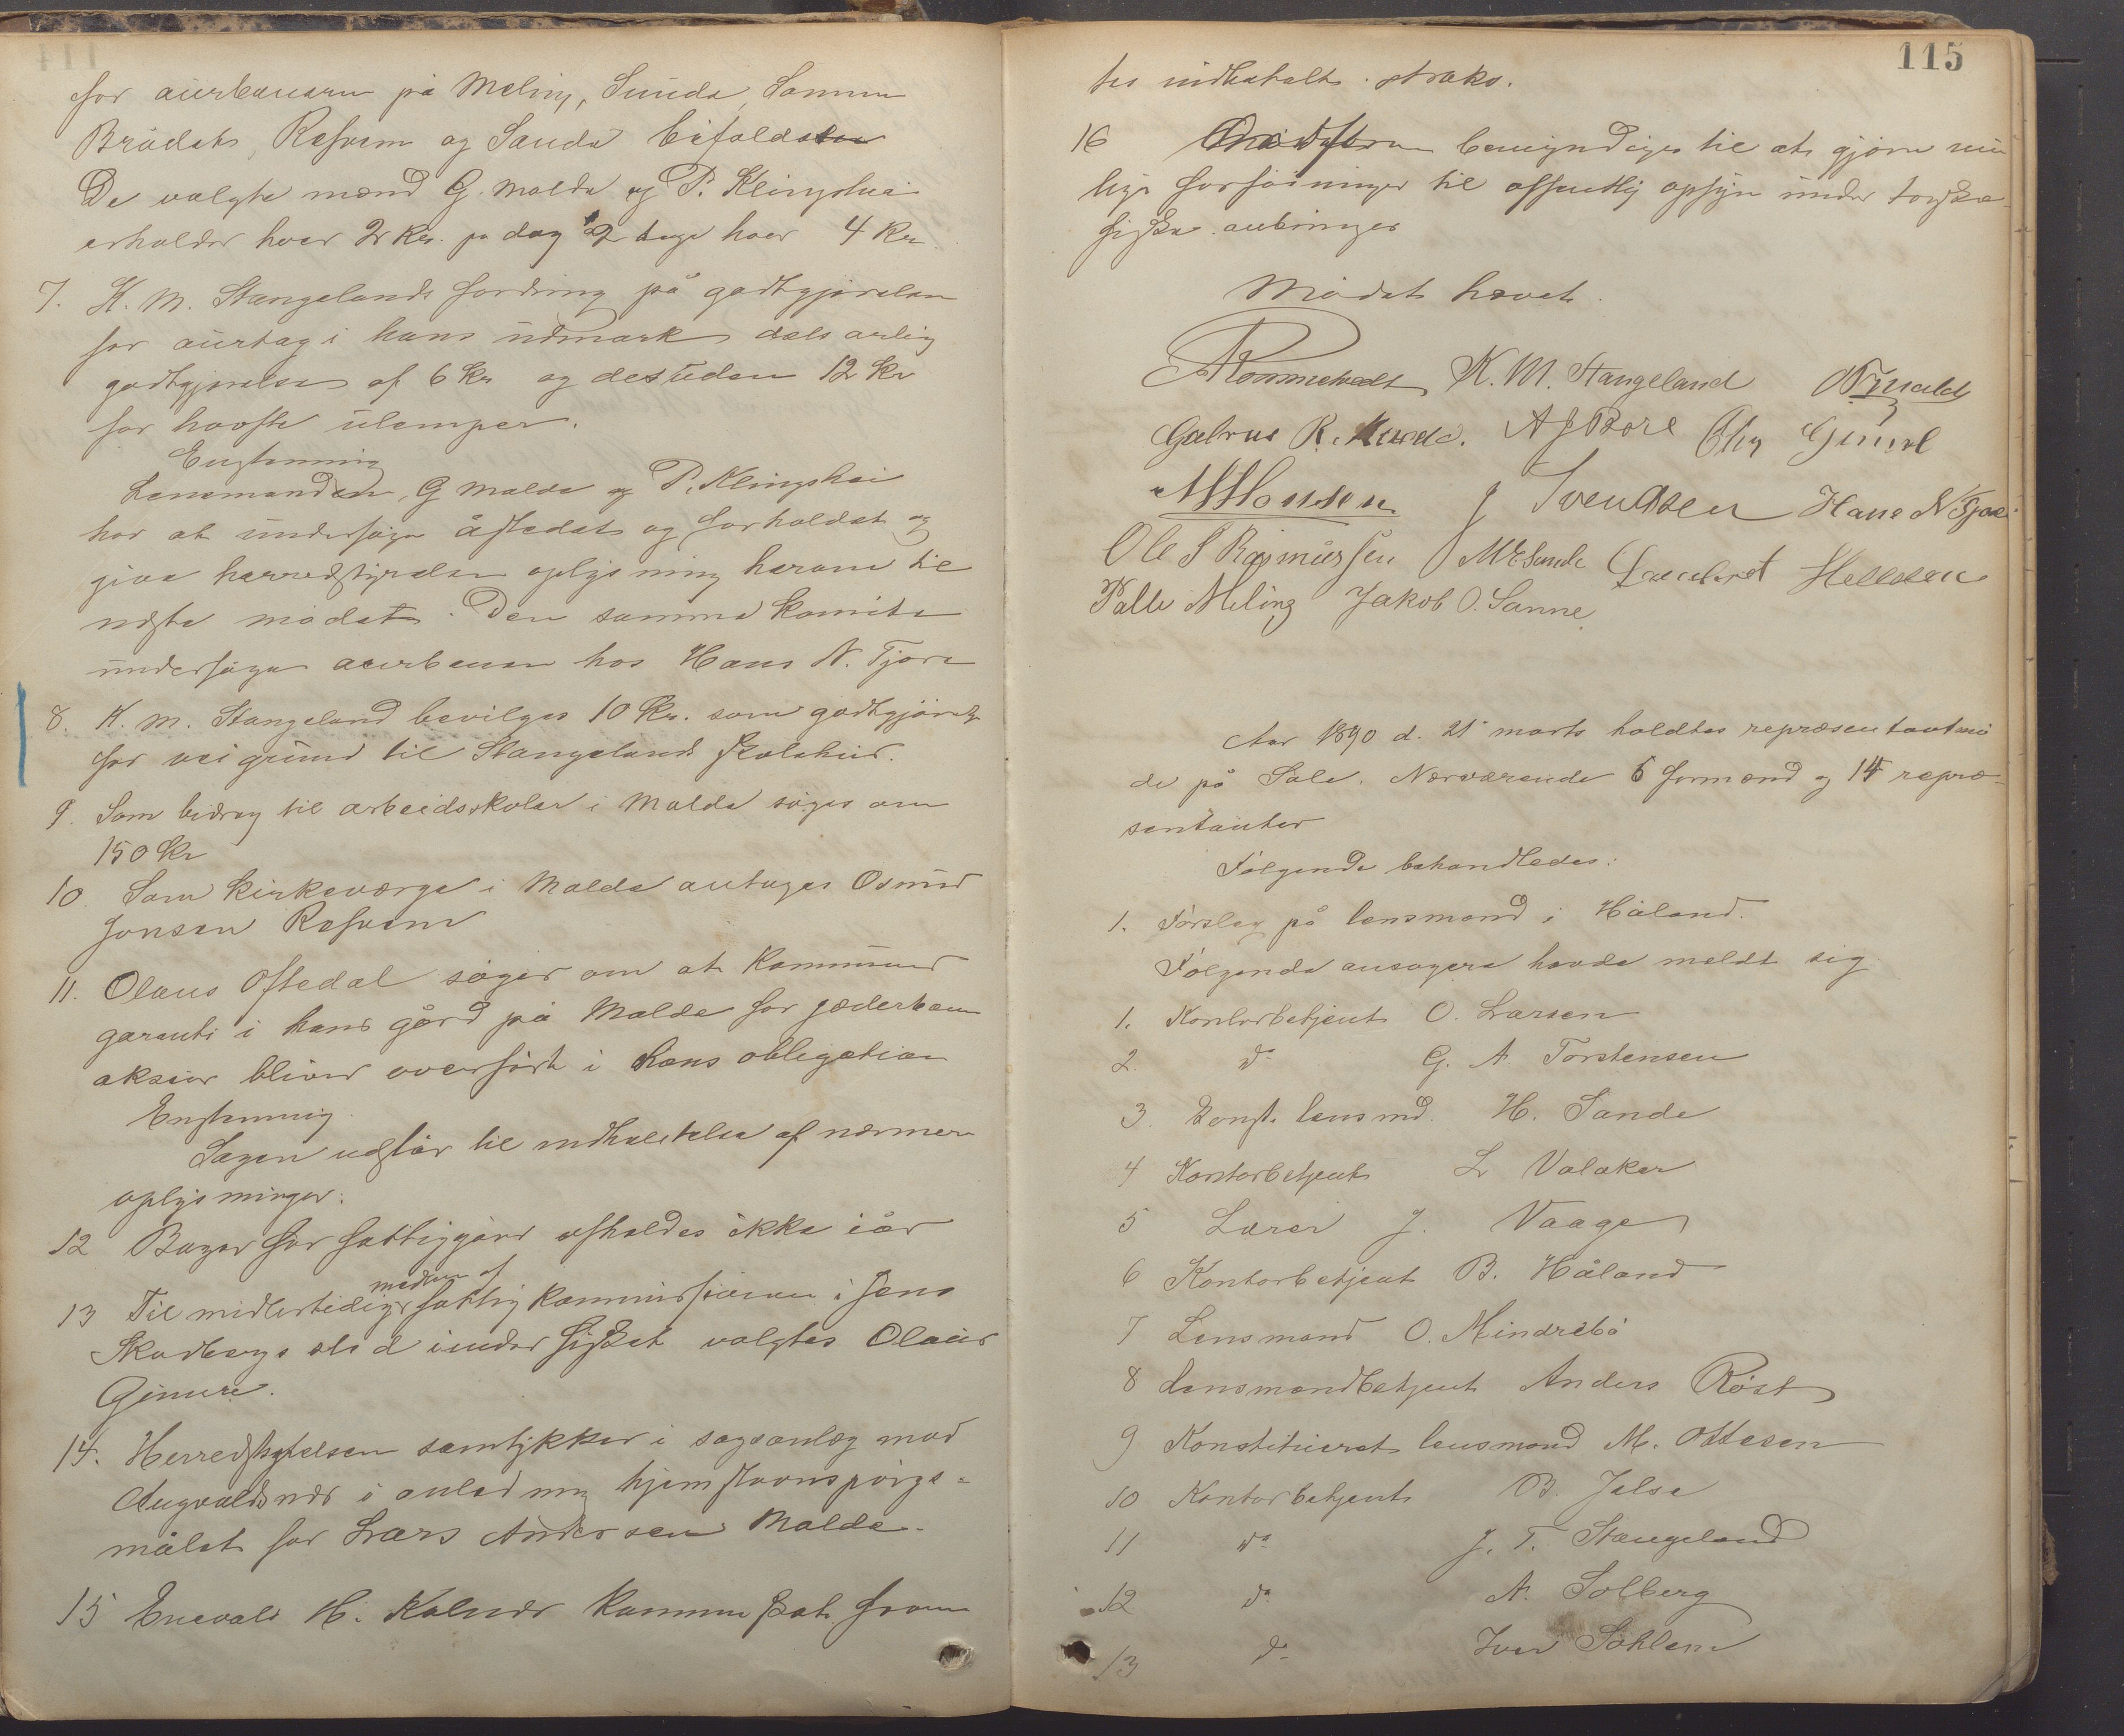 for aurbanarne på Meling, Sunde, Sømme
Brådets, Refsnem og Sande bifaldes
De valgte mænd G. Malde og P. Klingshei
erholder hver 2 Kr. pr dag 2 dage hver 4 Kr
7. K. M. Stangelands fordring på godtgjørelse
for aurtag i hans udmark dels årlig
godtgjørelse af 6 Kr og desuden 12 Kr
for havte ulemper.
Enstemmig
Lensmanden, G Malde og P. Klingshei
har at undersøge åstedet og forholdet og
give herredstyrelsen oplysning herom til
næste mødet. Den samme komite
undersøger aurbanen hos Hans N. Tjora
8. K. M. Stangeland bevilges 10 Kr. som godtgjørelse
for veigrund til Stangeland skolehus.
9. Som bidrag til arbeidsskoler i Malde søges om
150 Kr
10. Som kirkeværge i Malde antages Osmund
Jonsen Refsnem
11. Olaus Oftedal søger om at kommunens
garanti i hans gård på Malde for jæderbane
aksier bliver overført i hans obligation
Enstemmig.
Sagen udstår til indhentelse af nærmere
oplysninger.
12 Bazar for fattiggård afholdes ikke iår
13 Til midlertidigt medlem af fattigkommissionen i Jens
Skadbergs sted under fisket valgtes Olaus
Gimre.
14. Herredstyrelsen samtykker i sagsanlæg mod
Augvaldsnes i anledning hjemstavnspørgs-
målet for Lars Andersen Malde.
15 Enevald H. Kolnes kommuneskat
115
tes indbetalt straks.
16 bemyndiges til at gjøre mu
lige forføininger til offentlig opsyn under torske-
fiske anbringes
Mødet hævet.
Rommetvedt K. M. Stangeland
Gabrus R. A J Bore Olaus Gimre
Hansen J Svendsen Hans N Tjora
Ole S Rasmussen M E Sande Laurberet Hellesen
Palle Meling Jakob O. Sømme
Aar 1890 d. 21 marts holdtes repræsentantmø
de på Sole. Nærværende 6 formænd og 14 repræ-
sentanter
Følgende behandledes:
1. Forslag på lensmand i Håland.
Følgende ansøgere havde meldt sig
1. Kontorbetjent O. Larsen
2. do G. A Torstensen
3. Konst. lensmd. H. Sande
4 Kontorbetjent L Valaker
5 Lærer J. Vaage
6 Kontorbetjent B. Håland
7 Lensmand O. Mindrebø
8 Lensmandbetjent Anders Røst
9 Konstitueret lensmand M. Ottesen
10 Kontorbetjent B. Jelse
11 do J. T. Stangeland
12 do A. Solberg
13 do Iver Sohlem